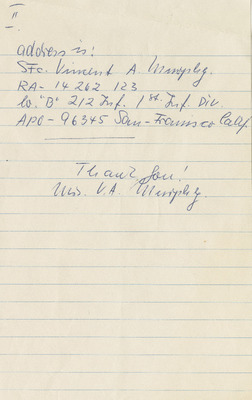 II
address is:
Sfc. Vincent A. Murphy.
RA- 14 262 123
Co. "B" 2/2 Inf. 1st Inf. Div.
APO- 96345 San-Francisco Calif
Thank You!
Mrs. V.A. Murphy.